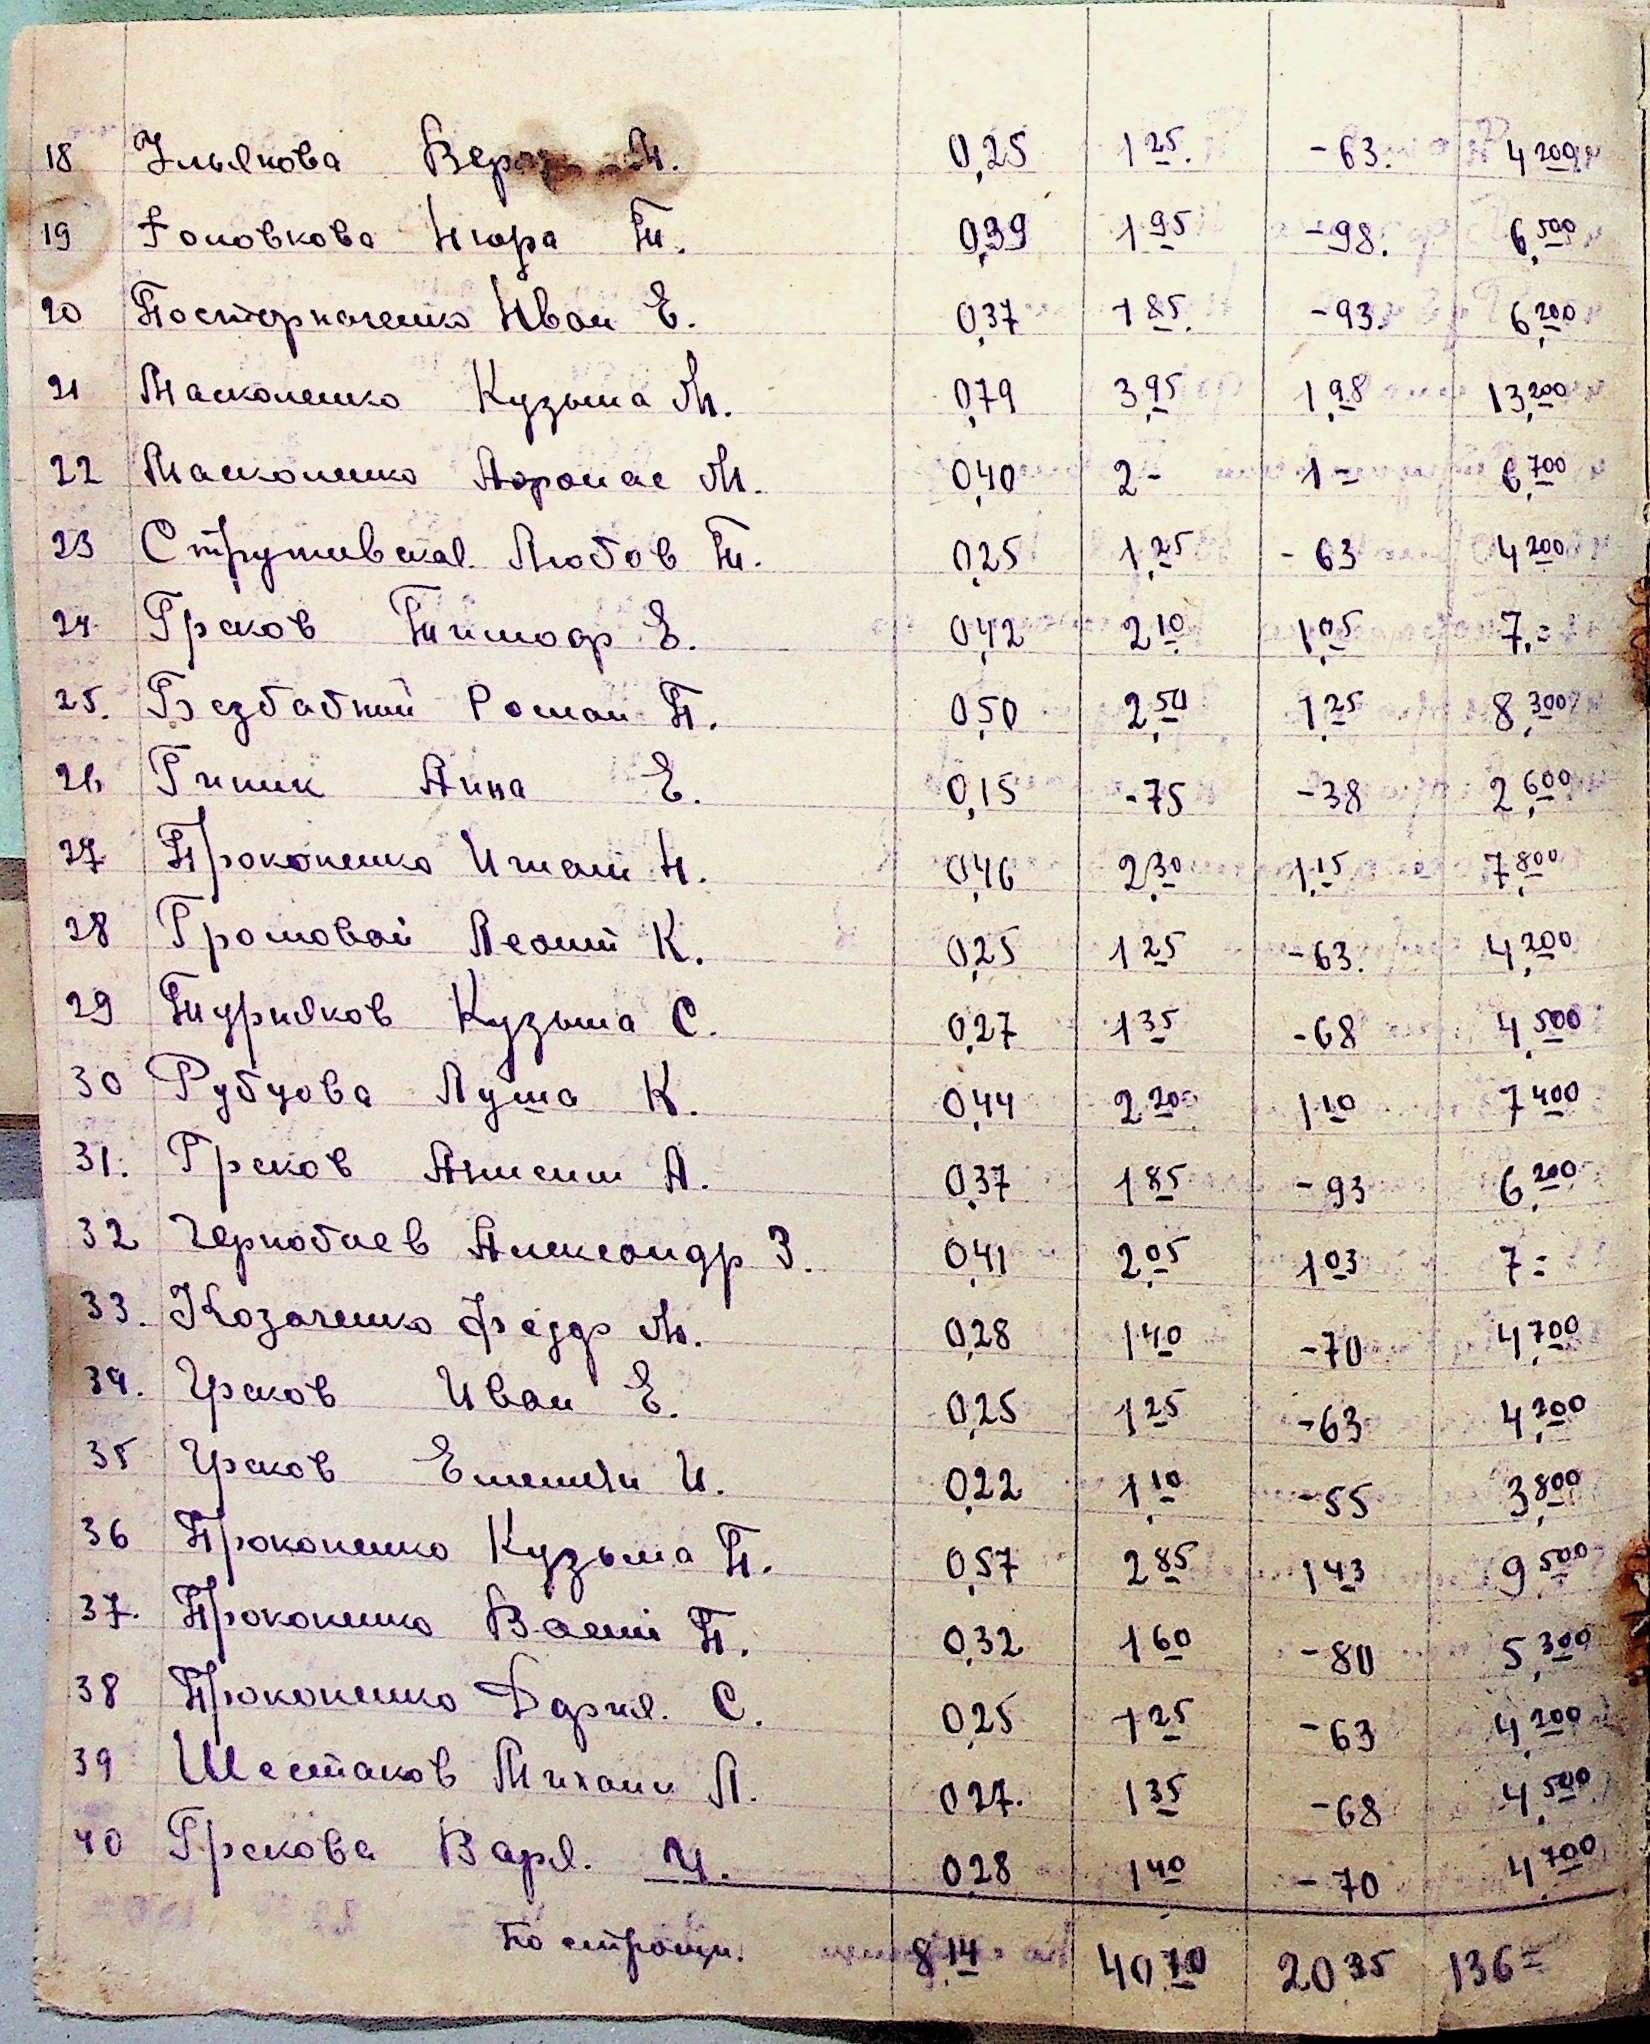 18 Ульякова Вера И. 0,25 1 25. -63. 4 200
19 Головкова Нюра П. 0,39 1 95 -98. 6,500
20 Постерначенко Иван Е. 0,37 1 85. -93. 6,200
21 Масконенко Кузьма М. 0,79 3,95 1,98 13,200
22 Масконенко М. 0,40 2- 1= 6,700
23 Любов П. 0,25 1,25 -63 4 200
24. Греков Тимофр Е. 0,42 2 10 1,05 7,=
25. Безбабний Роман П. 0,50 2,50 1,25 8,300
26 Гипик Анна Е. 0,15 -75 -38 2,600
27. Прокопенко Игнат Н. 0,46 2,30 1,15 7,800
28 Громовой Леонт К. 0,25 1 25 -63. 4,200
29 Турняков Кузьма С. 0,27 1 35 -68 4,500
30 Рубцова Луша К. 0,44 2 20 1 10 7 400
31. Греков А. 0,37 1 85 -93 6,200
32 Чернобаев Александр З. 0,41 2,05 1 03 7=
33. Козаченко Федор М. 0,28 1 40 -70 4,700
34. Греков Иван Е. 0,25 1 25 -63 4,200
35 Греков Емельян И. 0,22 1,10 -55 3,800
36 Прокопенко Кузьма П. 0,57 2 85 1 43 9 500
37. Прокопенко Васил П. 0,32 1 60 -80 5,300
38 Прокопенко Дарья. С. 0,25 1 25 -63 4,200
39 Шестаков Михаил Л. 0 27. 1 35 -68 4,500
40 Грекова Варя. И. 0,28 1 40 -70 4,700
По строниц. 8,14 40 70 20 35 136=